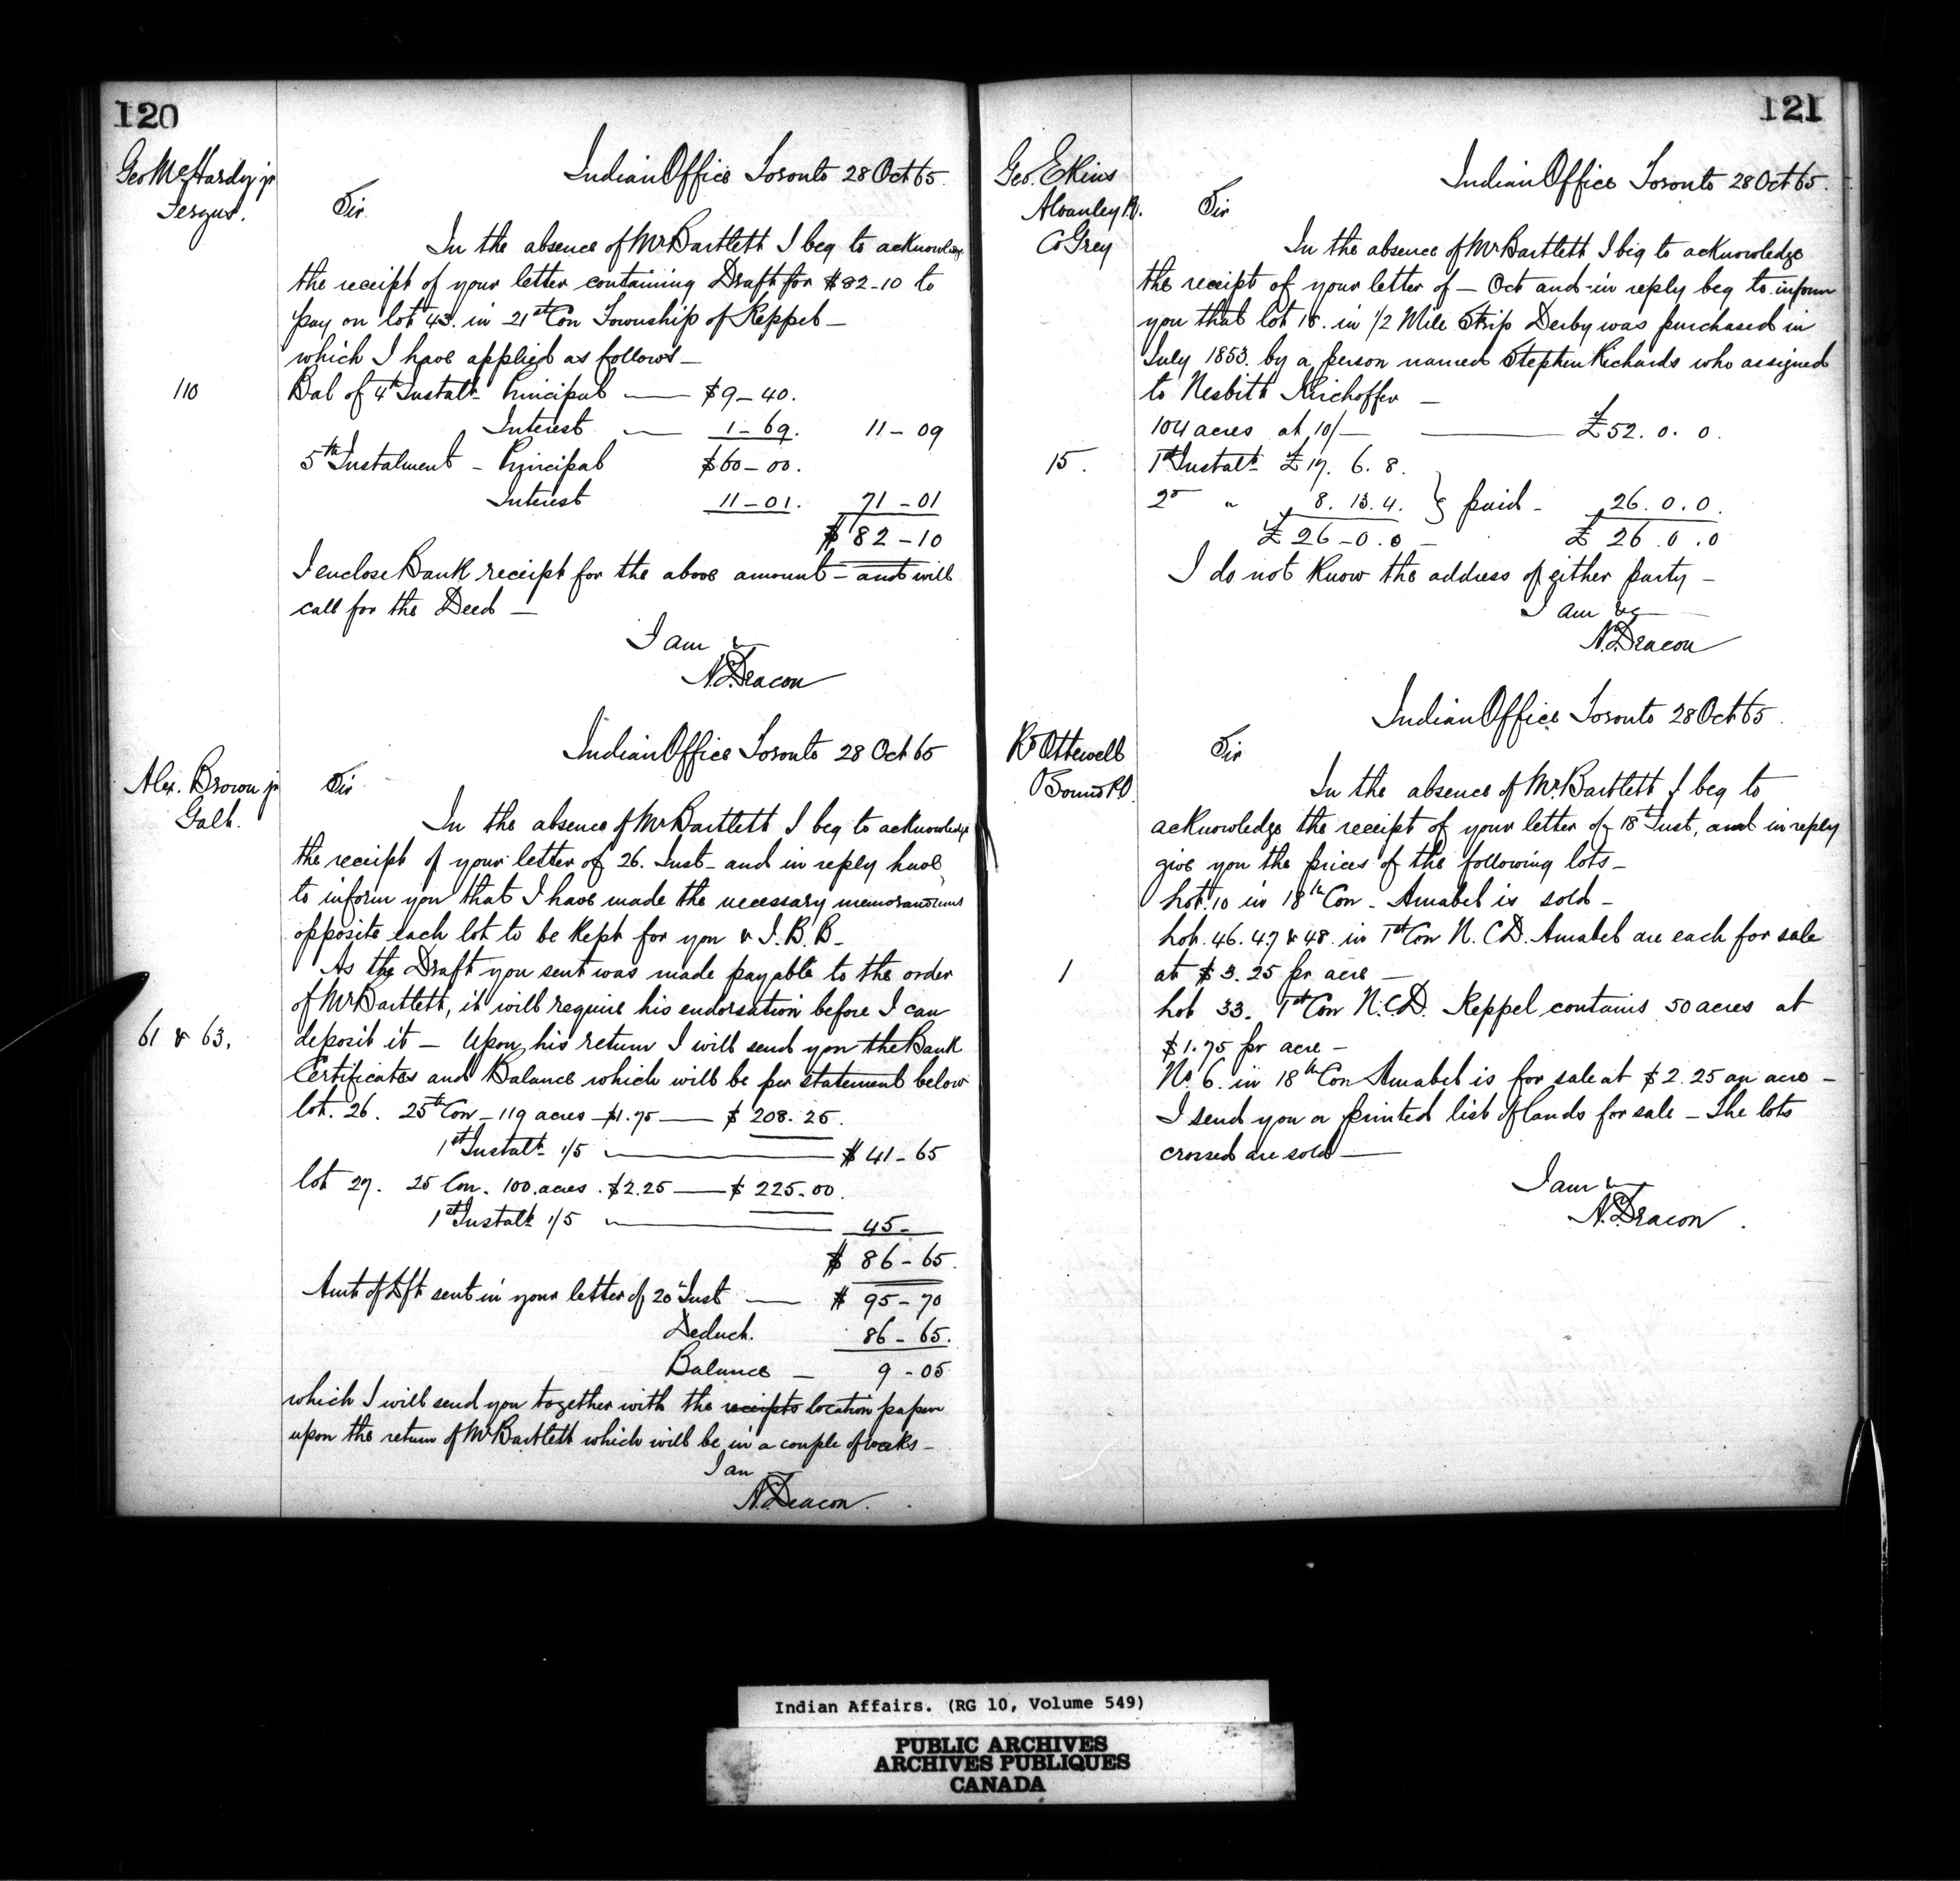 120
Geo McHardy jr
Fergus.
Indian Office Toronto 28 Oct 65.
Sir
In the absence of Mr Bartlett I beg to acknowledge
the receipt of your letter containing Draft for $82-10 to
pay on lot 43. in 21st Con Township of Keppel —
which I have applied as follows —
110
Bal of 4th Instalt Principal — $9-40.
Interest — 1-69. 11-09
5th Instalment - Principal $60-00.
Interest 11-01. 71-01
$82-10
I enclose Bank receipt for the above amount - and will
call for the Deed —
I am &
N. Deacon
Indian Office Toronto 28 Oct 65
Alex. Brown jr
Galt.
Sir
In the absence of Mr Bartlett I beg to acknowledge
the receipt of your letter of 26. Inst - and in reply have
to inform you that I have made the necessary memorandums
opposite each lot to be kept for you & J. B. B -
As the Draft you sent was made payable to the order
of Mr Bartlett, it will require his endorsation before I can
61 & 63.
deposit it — Upon his return I will send you the Bank
Certificates and Balance which will be per statement below
lot. 26. 25th Con - 119 acres - $1.75 — $208.25.
1st Instalt 1/5 — $41-65
lot 27. 25 Con. 100 acres. $2.25 — $225.00.
1st Instalt 1/5 — 45-
$86-65.
Amt of Dft sent in your letter of 20 Inst — $95-70
Deduct. 86-65.
Balance — 9-05
which I will send you together with the receipts location papers
upon the return of Mr Bartlett which will be in a couple of weeks -
I am
N. Deacon.
121
Geo. Ekins
Alvanley P.O.
Co Grey
Indian Office Toronto 28 Oct 65.
Sir
In the absence of Mr Bartlett I beg to acknowledge
the receipt of your letter of — Oct and in reply beg to inform
you that lot 15. in 1/2 Mile Strip Derby was purchased in
July 1853. by a person named Stephen Richards who assigned
to Nesbitt Kirchoffer —
104 acres at 10/- — £52. 0. 0.
15.
1st Instalt £17. 6. 8.
2d " 8. 13. 4. } paid - 26. 0. 0.
£26-0.0 - £26. 0. 0
I do not know the address of either party -
I am &c
N. Deacon
Indian Office Toronto 28 Oct 65.
R Ottewell
O Sound P.O.
Sir
In the absence of Mr. Bartlett I beg to
acknowledge the receipt of your letter of 18th Inst, and in reply
give you the prices of the following lots -
Lot. 10 in 18th Con - Amabel is sold -
Lot. 46. 47 & 48. in 1st Con N. C.D. Amabel are each for sale
1
at $3.25 pr acre —
Lot 33. 1st Con N.C.D. Keppel contains 50 acres at
$1.75 pr acre -
No. 6. in 18th Con Amabel is for sale at $2.25 an acre -
I send you a printed list of lands for sale - The lots
crossed are sold —
I am &
N. Deacon.
Indian Affairs. (RG 10, Volume 549)
PUBLIC ARCHIVES
ARCHIVES PUBLIQUES
CANADA